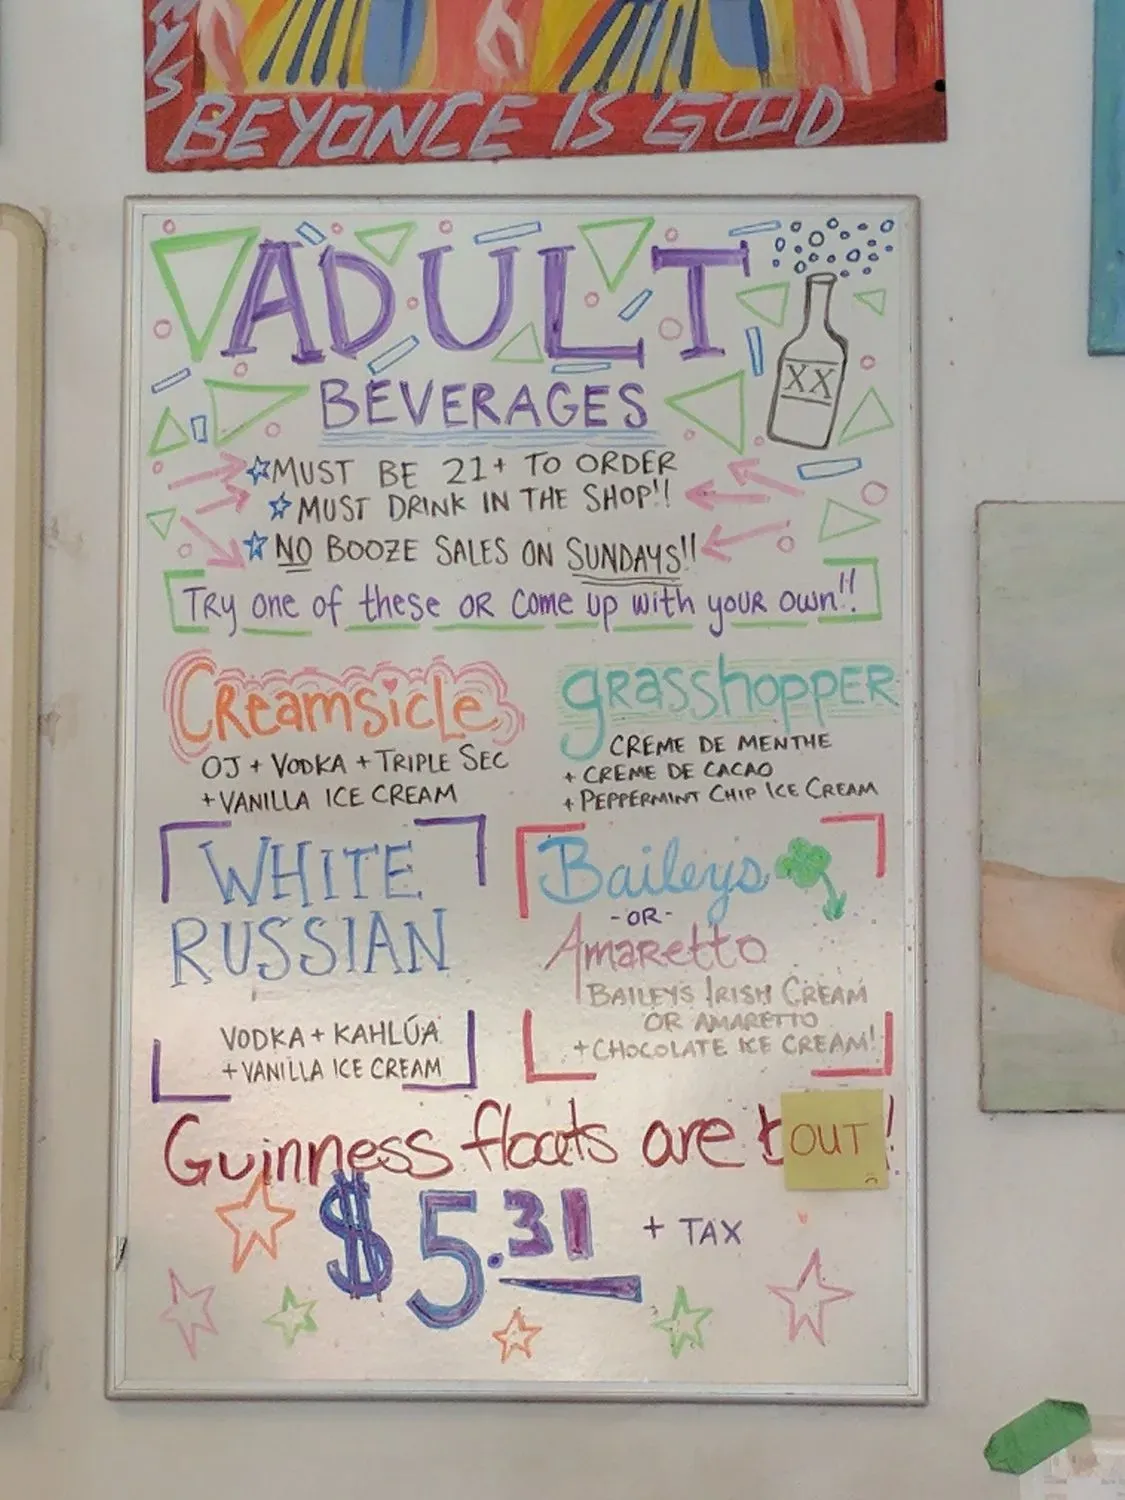 BEYONCE IS GOOD
ADULT
XX
BEVERAGES
MUST BE 21+ TO ORDER
MUST DRINK IN THE SHOP!!
NO BOOZE SALES ON SUNDAYS!!
TRY one of these OR come up with your own!!
CReamsicle
OJ + VODKA + TRIPLE SEC
+ VANILLA ICE CREAM
gRasshoppER
CREME DE MENTHE
+ CREME DE CACAO
+ PEPPERMINT CHIP ICE CREAM
WHITE
RUSSIAN
VODKA + KAHLÚA
+ VANILLA ICE CREAM
Baileys
-OR-
Amaretto
BAILEYS IRISH CREAM
OR AMARETTO
+ CHOCOLATE ICE CREAM!
Guinness floats are OUT!
$5.31 + TAX